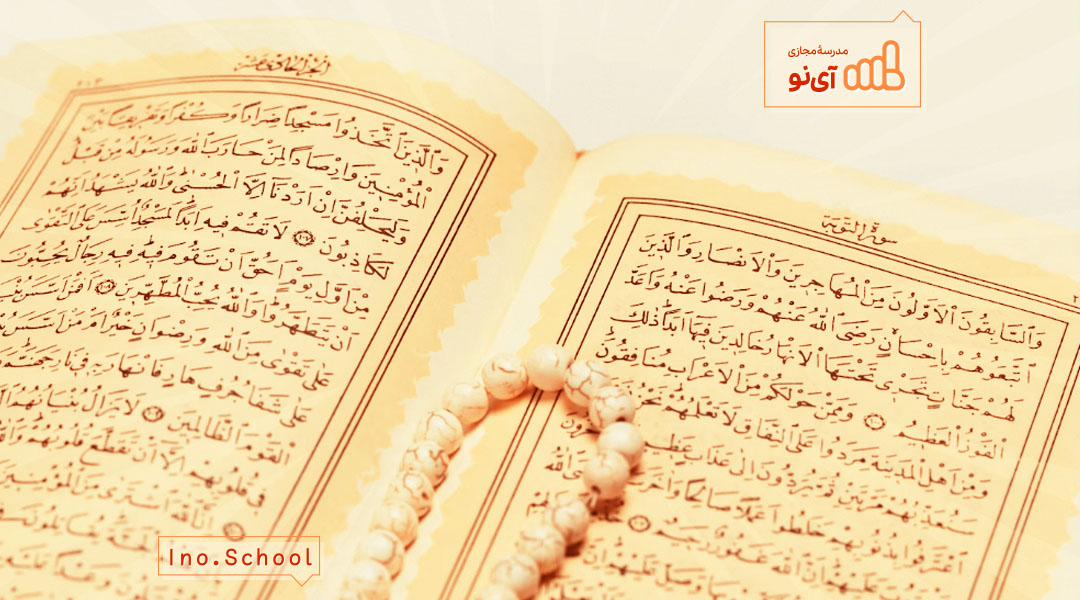 مدرسهٔ مجازی
آی‌نو
سورة التوبة
وَالسَّابِقُونَ الْاَوَّلُونَ مِنَ الْمُهَاجِرِينَ وَالْاَنْصَارِ وَالَّذِينَ
اتَّبَعُوهُمْ بِاِحْسَانٍ رَضِيَ اللّٰهُ عَنْهُمْ وَرَضُوا عَنْهُ وَاَعَدَّ
لَهُمْ جَنَّاتٍ تَجْرِي تَحْتَهَا الْاَنْهَارُ خَالِدِينَ فِيهَا اَبَدًا ذٰلِكَ
الْفَوْزُ الْعَظِيمُ وَمِمَّنْ حَوْلَكُمْ مِنَ الْاَعْرَابِ مُنَافِقُونَ
وَمِنْ اَهْلِ الْمَدِينَةِ مَرَدُوا عَلَى النِّفَاقِ لَا تَعْلَمُهُمْ نَحْنُ
سَنُعَذِّبُهُمْ مَرَّتَيْنِ ثُمَّ يُرَدُّونَ اِلٰى عَذَابٍ عَظِيمٍ
اعْتَرَفُوا بِذُنُوبِهِمْ خَلَطُوا عَمَلًا صَالِحًا وَاٰخَرَ
عَلَيْهِمْ اِنَّ اللّٰهَ غَفُورٌ رَحِيمٌ
وَصَلِّ عَلَيْهِمْ اِنَّ
الجزء الحادي عشر
وَالَّذِينَ اتَّخَذُوا مَسْجِدًا ضِرَارًا وَكُفْرًا وَتَفْرِيقًا بَيْنَ
الْمُؤْمِنِينَ وَاِرْصَادًا لِمَنْ حَارَبَ اللّٰهَ وَرَسُولَهُ مِنْ قَبْلُ
وَلَيَحْلِفُنَّ اِنْ اَرَدْنَا اِلَّا الْحُسْنٰى وَاللّٰهُ يَشْهَدُ اِنَّهُمْ
لَكَاذِبُونَ لَا تَقُمْ فِيهِ اَبَدًا لَمَسْجِدٌ اُسِّسَ عَلَى التَّقْوٰى
مِنْ اَوَّلِ يَوْمٍ اَحَقُّ اَنْ تَقُومَ فِيهِ فِيهِ رِجَالٌ يُحِبُّونَ
اَنْ يَتَطَهَّرُوا وَاللّٰهُ يُحِبُّ الْمُطَّهِّرِينَ اَفَمَنْ اَسَّسَ
عَلٰى تَقْوٰى مِنَ اللّٰهِ وَرِضْوَانٍ خَيْرٌ اَمْ مَنْ اَسَّسَ
عَلٰى شَفَا جُرُفٍ هَارٍ فَانْهَارَ بِهِ فِي نَارِ جَهَنَّمَ
الْقَوْمَ الظَّالِمِينَ لَا يَزَالُ بُنْيَانُهُمُ
فِي قُلُوبِهِمْ اِلَّا اَنْ تَقَطَّعَ قُلُوبُهُمْ
اِنَّ اللّٰهَ اشْتَرٰى مِنَ الْمُؤْمِنِينَ
Ino.School